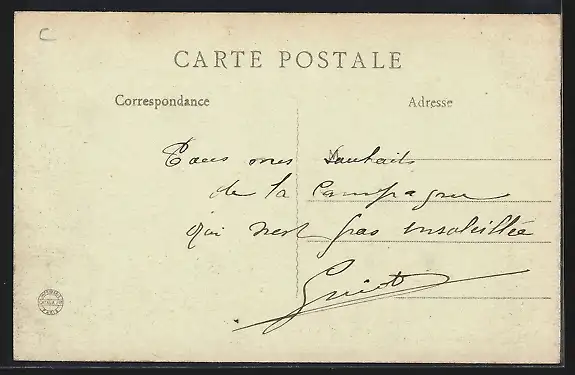 C
CARTE POSTALE
Correspondance
Adresse
M
Tous mes souhaits
de la campagne
qui n'est pas ensoleillée